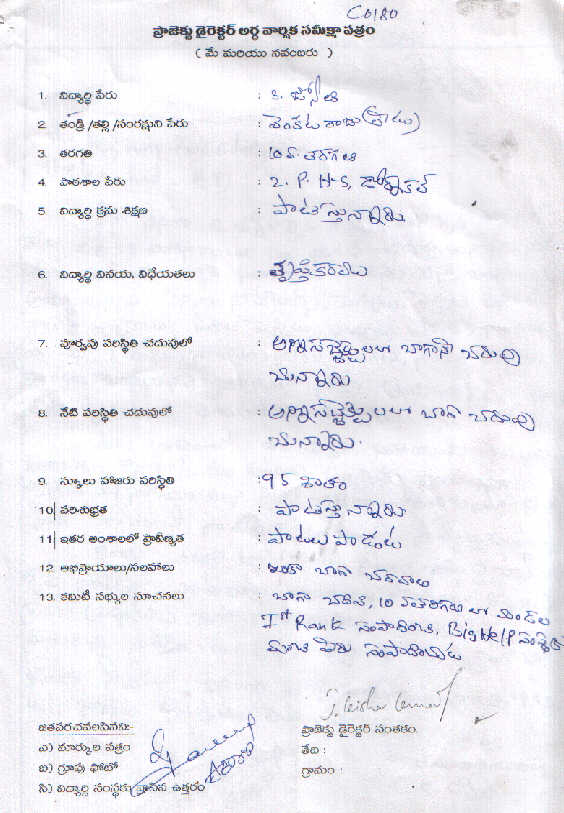 C0180
ప్రాజెక్టు డైరెక్టర్ అర్థ వార్షిక సమీక్షా పత్రం
( మే మరియు నవంబరు )
1. విద్యార్థి పేరు : కె. జ్యోతి
2. తండ్రి /తల్లి /సంరక్షుని పేరు : వెంకట రాజు
3. తరగతి : 10వ తరగతి
4. పాఠశాల పేరు : Z. P. H-S,
5. విద్యార్థి క్రమ శిక్షణ : పాటిస్తున్నారు
6. విద్యార్థి వినయ, విధేయతలు : తృప్తికరము
7. పూర్వపు పరిస్థితి చదువులో : అన్నిసబ్జెక్టులలో బాగానే చదువు
చున్నారు
8. నేటి పరిస్థితి చదువులో : అన్నిసబ్జెక్టులలో బాగా చదువు
చున్నారు.
9. స్కూలు హాజరు పరిస్థితి : 95 శాతం
10 పరిశుభ్రత : పాటిస్తున్నారు
11 ఇతర అంశాలలో ప్రావీణ్యత : పాటలు పాడుట
12. అభిప్రాయాలు/సలహాలు : ఇంకా బాగా చదవాలి
13. కమిటీ సభ్యుల సూచనలు : బాగా చదివి, 10 వతరగతి లో మండల
Ist Rank సంపాదించి, Big Help సంస్థకు
మంచి పేరు
జతపరచవలసినవి:-
ఎ) మార్కుల పత్రం
బి) గ్రూపు ఫోటో
సి) విద్యార్థి సంస్థకు వ్రాసిన ఉత్తరం
ప్రాజెక్టు డైరెక్టర్ సంతకం.
తేది :
గ్రామం :